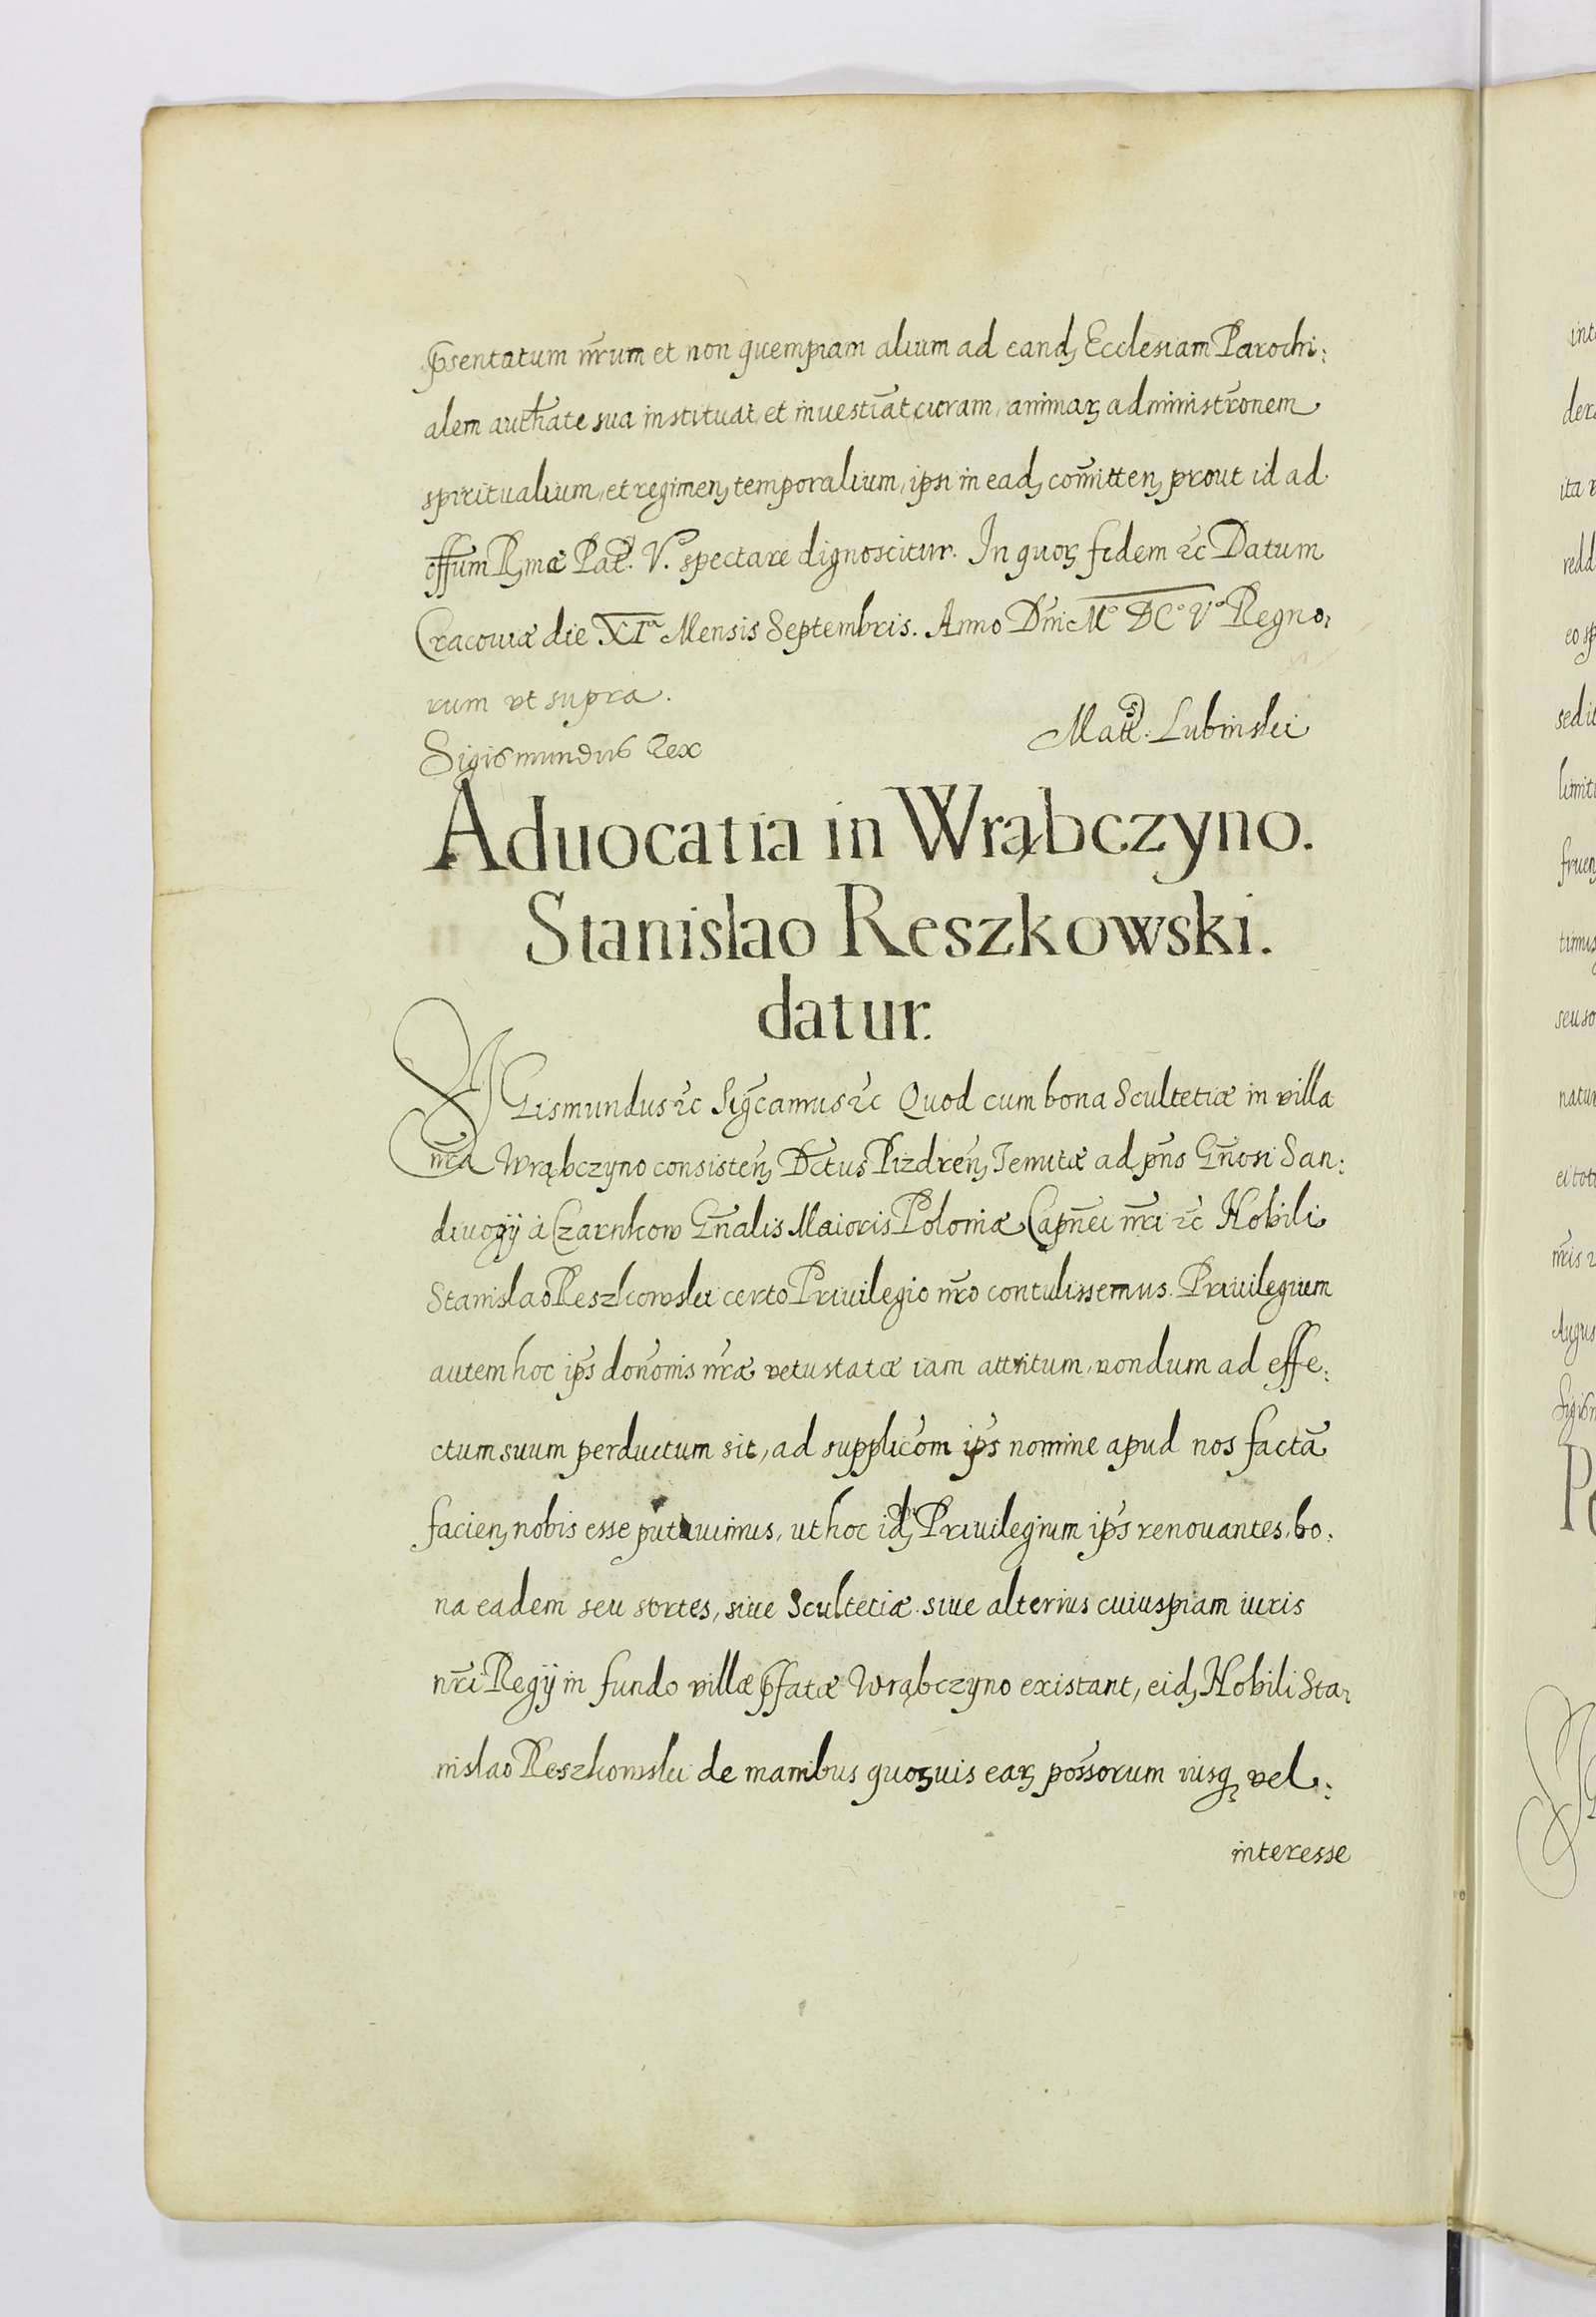 p̄sentatum nr̃um et non quempiam alium ad eandꝫ Ecclesiam Parochi:
alem auth̃ate sua instituat, et inuestiat curam, animarꝫ administr̃onem
spiritualium, et regimenꝫ temporalium, ipsi in eadꝫ com̃ittenꝫ prout id ad
offum Rꝫmæ Pat. V. spectare dignoscitur. In quorꝫ fidem ꝛc Datum
Cracouiæ die XIa Mensis Septembris. Anno Dñi Mº DCº Vº Regno,
rum vt supra.
Sigismundus Rex
Matt. Lubinski
Aduocatia in Wrąbczyno.
Stanislao Reszkowski.
datur.
SIGismundus ꝛc Sig̃camus ꝛc Quod cum bona Scultetiæ in villa
nr̃a Wrąbczyno consisteñꝫ Dc̃tus Pizdreñꝫ Tenutæ ad pñs Gñosi San:
diuogÿ à Czarnkow Gñalis Maioris Poloniæ Capñei nr̃i ꝛc Nobili
Stanislao Reszkowski certo Priuilegio nr̃o contulissemus. Priuilegium
autem hoc ip̃s doñonis nr̃æ vetustatæ iam attritum, nondum ad effe:
ctum suum perductum sit, ad supplic̃om ip̃s nomine apud nos factã
facienꝫ nobis esse putauimus, ut hoc idꝫ Priuilegium ip̃s renouantes, bo,
na eadem seu sortes, siue Scultetiæ siue alterius cuiuspiam iuris
nr̃i Regÿ in fundo villæ p̄fatæ Wrąbczyno existant, eidꝫ Nobili Sta,
nislao Reszkowski de manibus quorꝫuis earꝫ poss̃orum iusqꝫ vel:
interesse